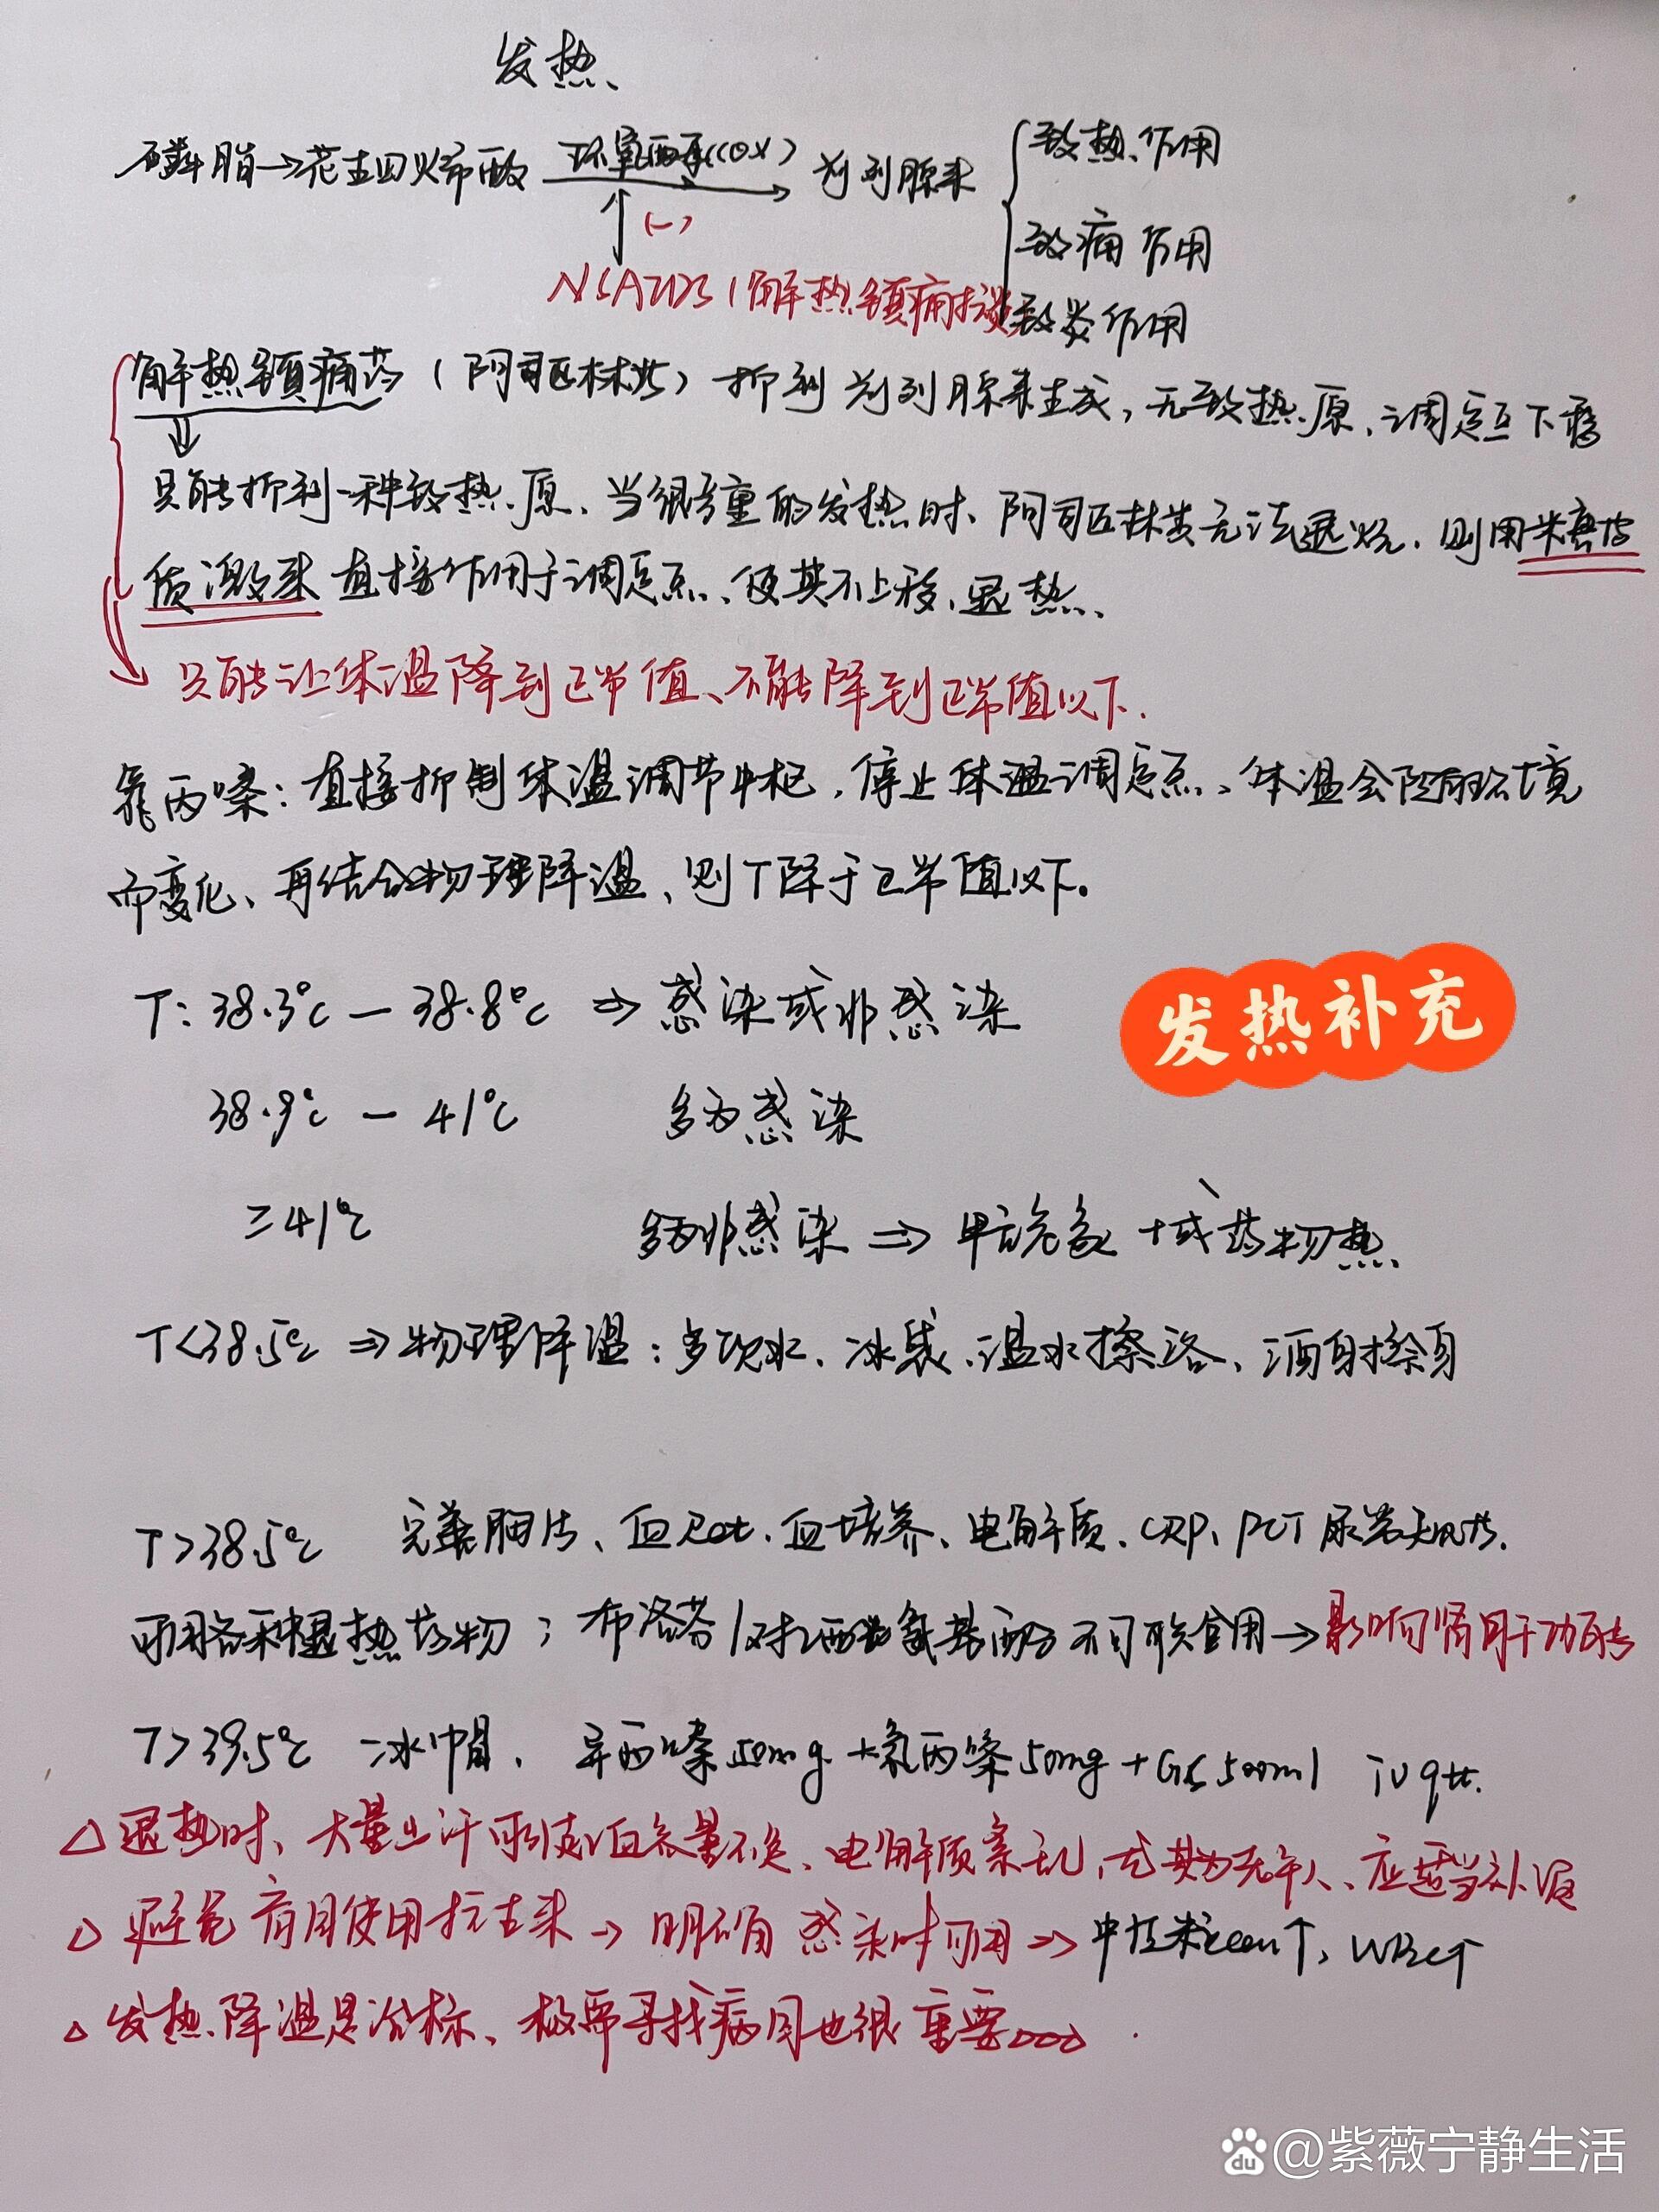 发热、
磷脂→花生四烯酸 环氧酶(COX)→ 前列腺素 致热作用
(-) 致痛作用
NSAIDs(解热镇痛抗炎 致炎作用
解热镇痛药(阿司匹林类)抑制前列腺素生成,无致热原、调定点下移
只能抑制一种致热原、当很严重的发热时、阿司匹林类无法退烧、则用米唐皮
质激素直接作用于调定点、使其不上移、退热、
只能让体温降到正常值、不能降到正常值以下.
氯丙嗪:直接抑制体温调节中枢,停止体温调定点、体温会随环境
而变化、再结合物理降温、则T降于正常值以下。
T:38.3℃-38.8℃⇒感染或非感染
发热补充
38.9℃-41℃ 多为感染
≥41℃ 多为非感染⇒甲亢危象 或药物热、
T<38.5℃⇒物理降温:多饮水、冰袋、温水擦浴、酒精擦身
T>38.5℃ 完善胸片、血Rot.血培养、电解质、CRP、PCT 尿常规
可用各种退热药物;布洛芬/对乙酰氨基酚不可联合用→影响肾肝功能
T>39.5℃ 冰帽、异丙嗪50mg+氯丙嗪50mg+GS 500ml ivgtt.
△退热时、大量出汗可使血容量不足、电解质紊乱,尤其为老年人、应适当补液
△避免盲目使用抗生素→明确感染时可用⇒中性粒cen↑、WBC↑
△发热、降温是治标、极要寻找病因也很重要。。。
du @紫薇宁静生活